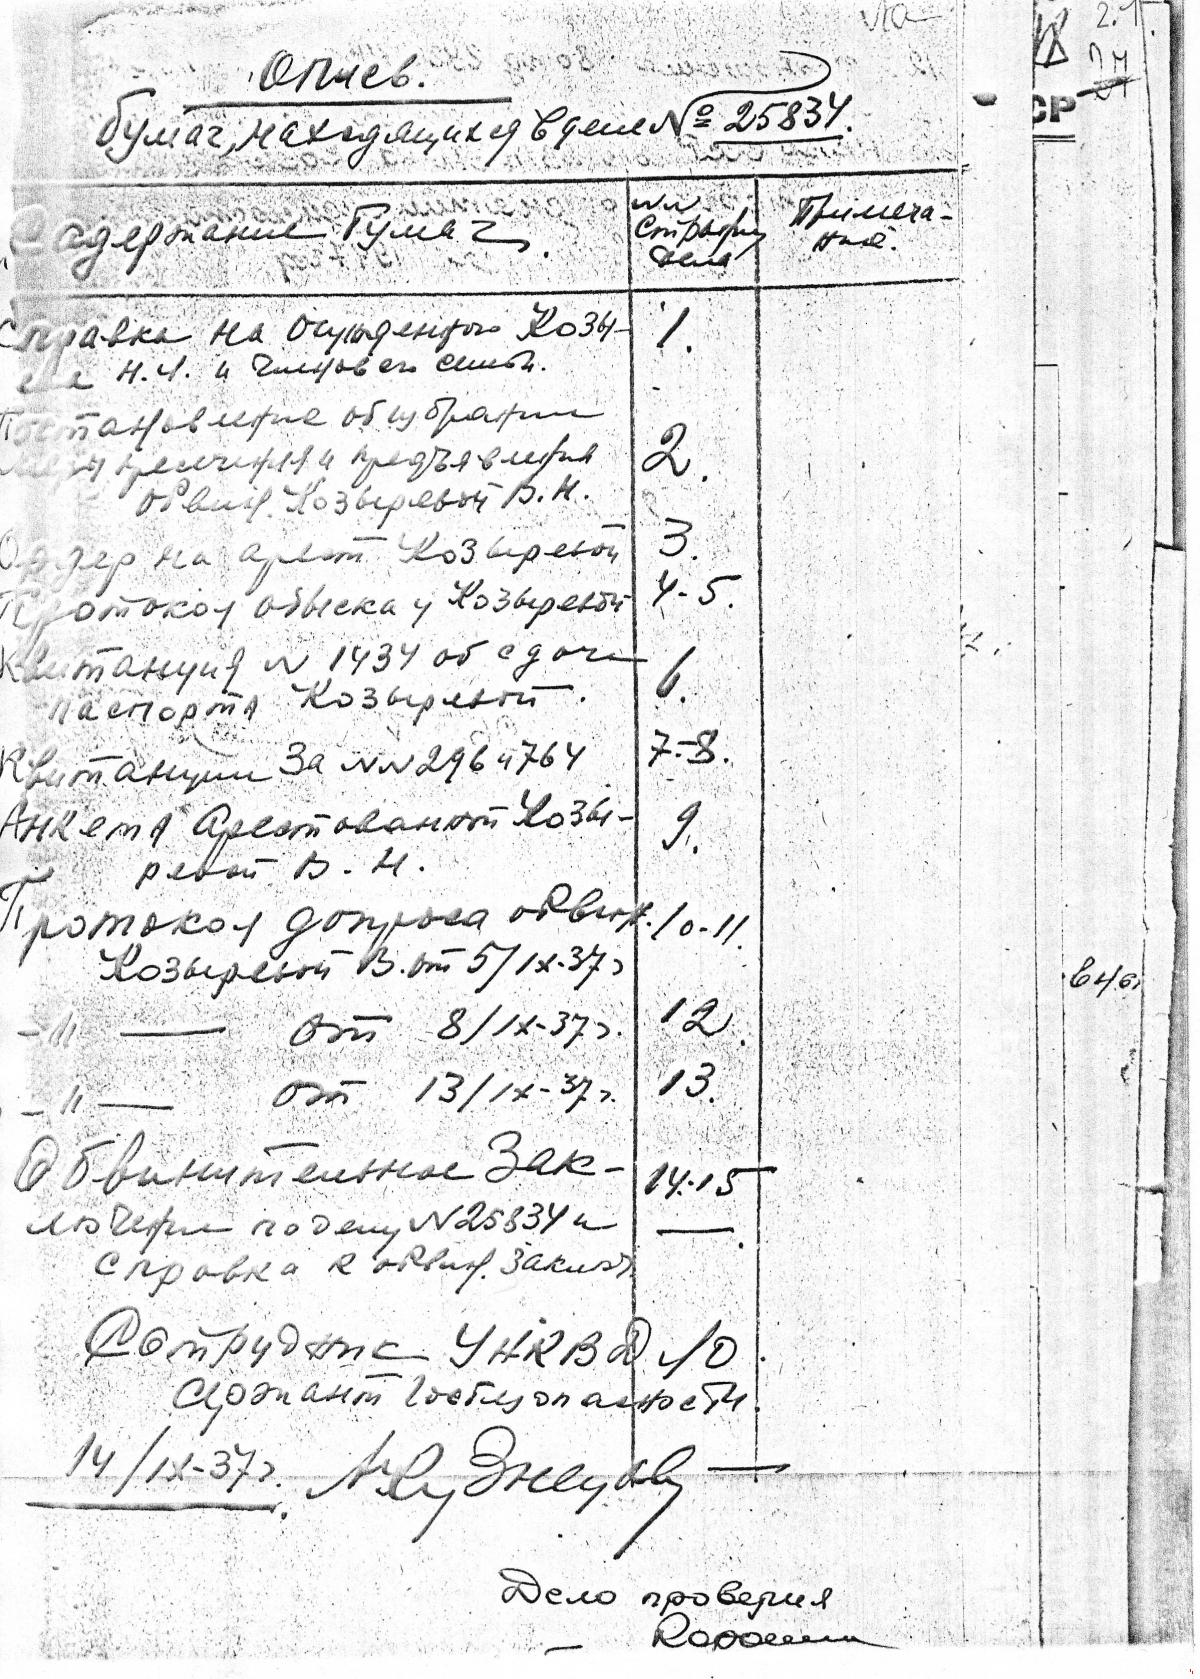 Опись.
бумаг, находящихся в деле № 25834.
Содержание бумаг.
№№ страниц дела
Примечание.
Справка на осужденного Козы-
рева Н.А. и членов его семьи.
1.
Постановление об избрании
меры пресечения и предъявления
обвин. Козыревой В.Н.
2.
Ордер на арест Козыревой
3.
Протокол обыска у Козыревой
4-5.
Квитанция № 1434 об сдаче
паспорта Козыревой.
6.
Квитанции за №№ 296 и 764
7-8.
Анкета арестованной Козы-
ревой В.Н.
9.
Протокол допроса обвин.
10-11.
Козыревой В. от 5/IX-37г
-"- от 8/IX-37г.
12.
-"- от 13/IX-37г.
13.
Обвинительное зак-
14-15
лючение по делу №25834 и
справка к обвин. заключ.
—.
Сотрудник УНКВД ЛО.
сержант госбезопасности.
14/IX-37г. А. Кузнецов
Дело проверил
СР
2.1